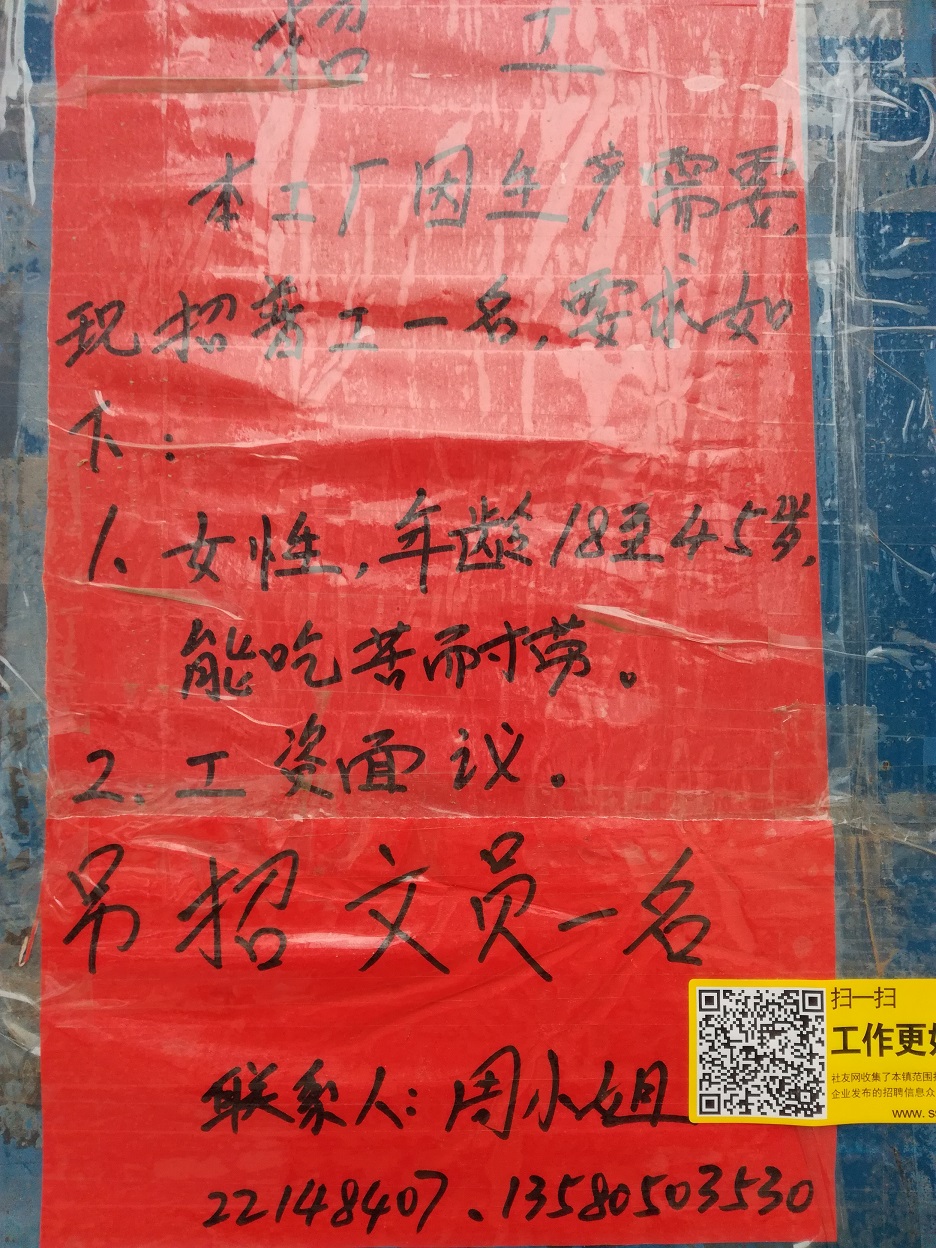 招 工
本工厂因生产需要,
现招普工一名,要求如
下:
1、女性,年龄18至45岁,
能吃苦而耐劳。
2、工资面议。
另招文员一名
联系人:周小姐
22148407、13580503530
扫一扫
工作更好
社友网收集了本镇范围
企业发布的招聘信息众
www.s